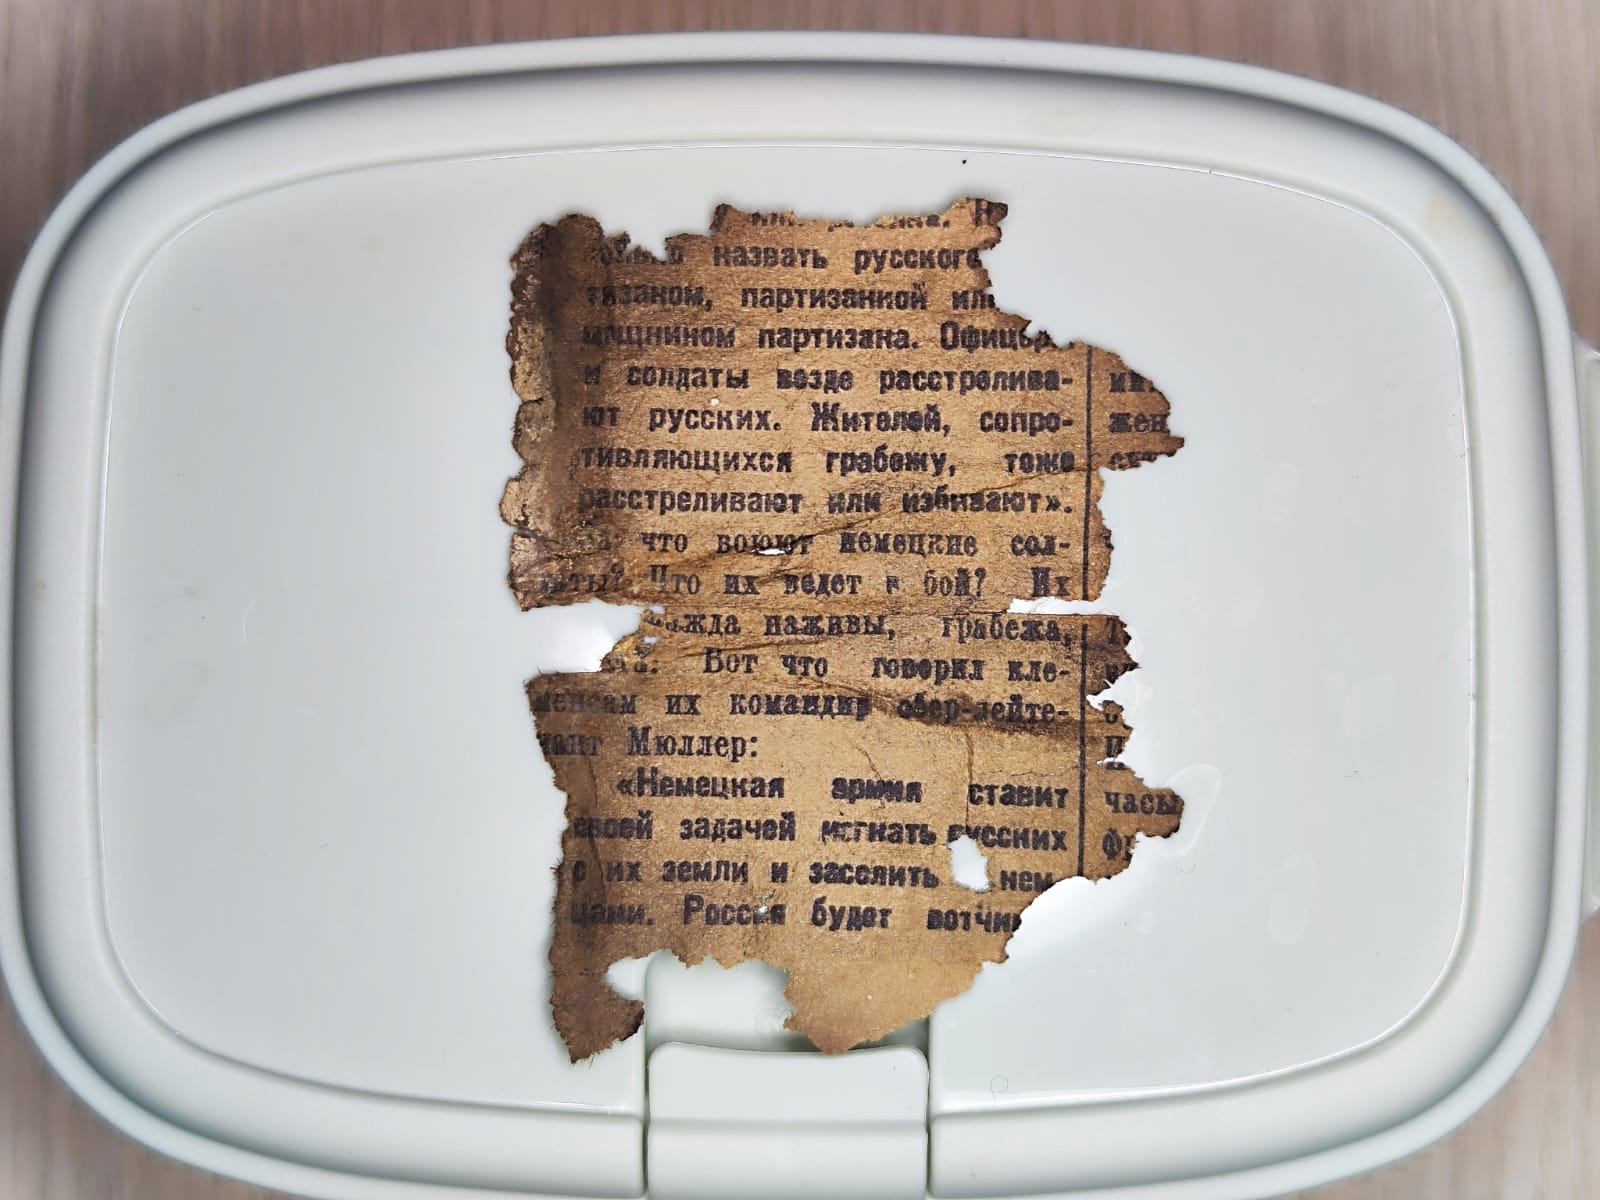 назвать русского
тизаном, партизанкой или
мощником партизана. Офицеры
и солдаты везде расстрелива-
ют русских. Жителей, сопро-
тивляющихся грабежу, тоже
расстреливают или избивают».
что воюют немецкие сол-
даты? Что их ведет в бой? Их
жажда наживы, грабежа,
Вот что говорил кле-
менсам их командир обер-лейте-
нант Мюллер:
«Немецкая армия ставит
своей задачей изгнать русских
с их земли и заселить нем
цами. Россия будет вотчин
жен
часы